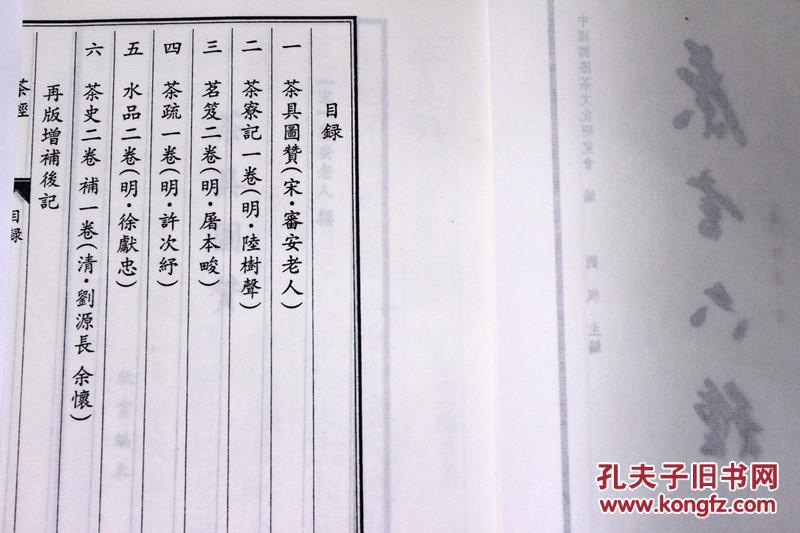 目録
一 茶具圖贊(宋·審安老人)
二 茶寮記一卷(明·陸樹聲)
三 茗笈二卷(明·屠本畯)
四 茶疏一卷(明·許次紓)
五 水品二卷(明·徐獻忠)
六 茶史二卷 補一卷(清·劉源長 余懷)
再版增補後記
茶經
目録
中國國際茶文化研究會 編
主編
孔夫子旧书网
www.kongfz.com